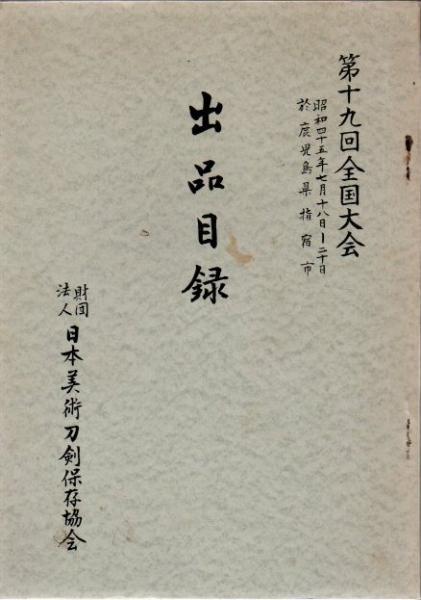 第十九回全国大会
昭和四十五年七月十八日―二十日
於 鹿児島県指宿市
出品目録
財団法人
日本美術刀剣保存協会